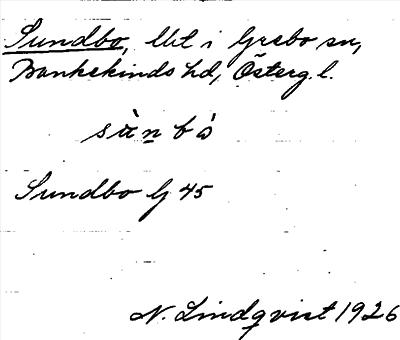 Sundbo, Ut i Grebo sn,
Bankekinds hd, Österg. l.
sànbò
Sundbo G 45
N. Lindqvist 1926